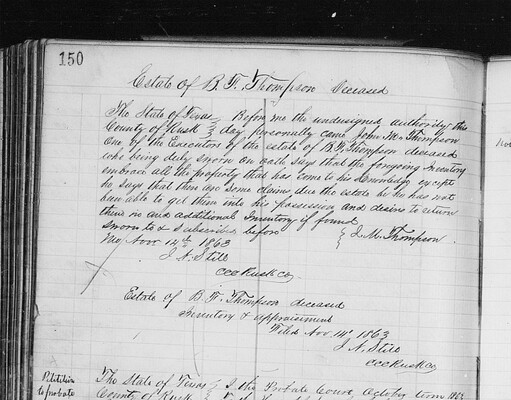 150
Estate of B. F. Thompson Deceased
The State of Texas } Before me the undersigned authority this
County of Rusk } day personally came John M. Thompson
One of the Executors of the estate of B. F. Thompson deceased
who being duly sworn on oath says that the forgoing Inventory
embrace all the property that has come to his knowledge except
he says that there are some claims due the estate he has not
been able to get them into his possession and desires to return
them in and additional Inventory if found
sworn to & Subscribed before } J. M. Thompson
me Novr 14th 1863
J. N. Still
CCC Rusk Co
Estate of B. F. Thompson deceased
Inventory & appraisement
Filed Nov. 14th 1863
J. N. Still
CCC Rusk Co
Petition
to probate
The State of Texas } In the Probate Court, October term 186
County of Rusk